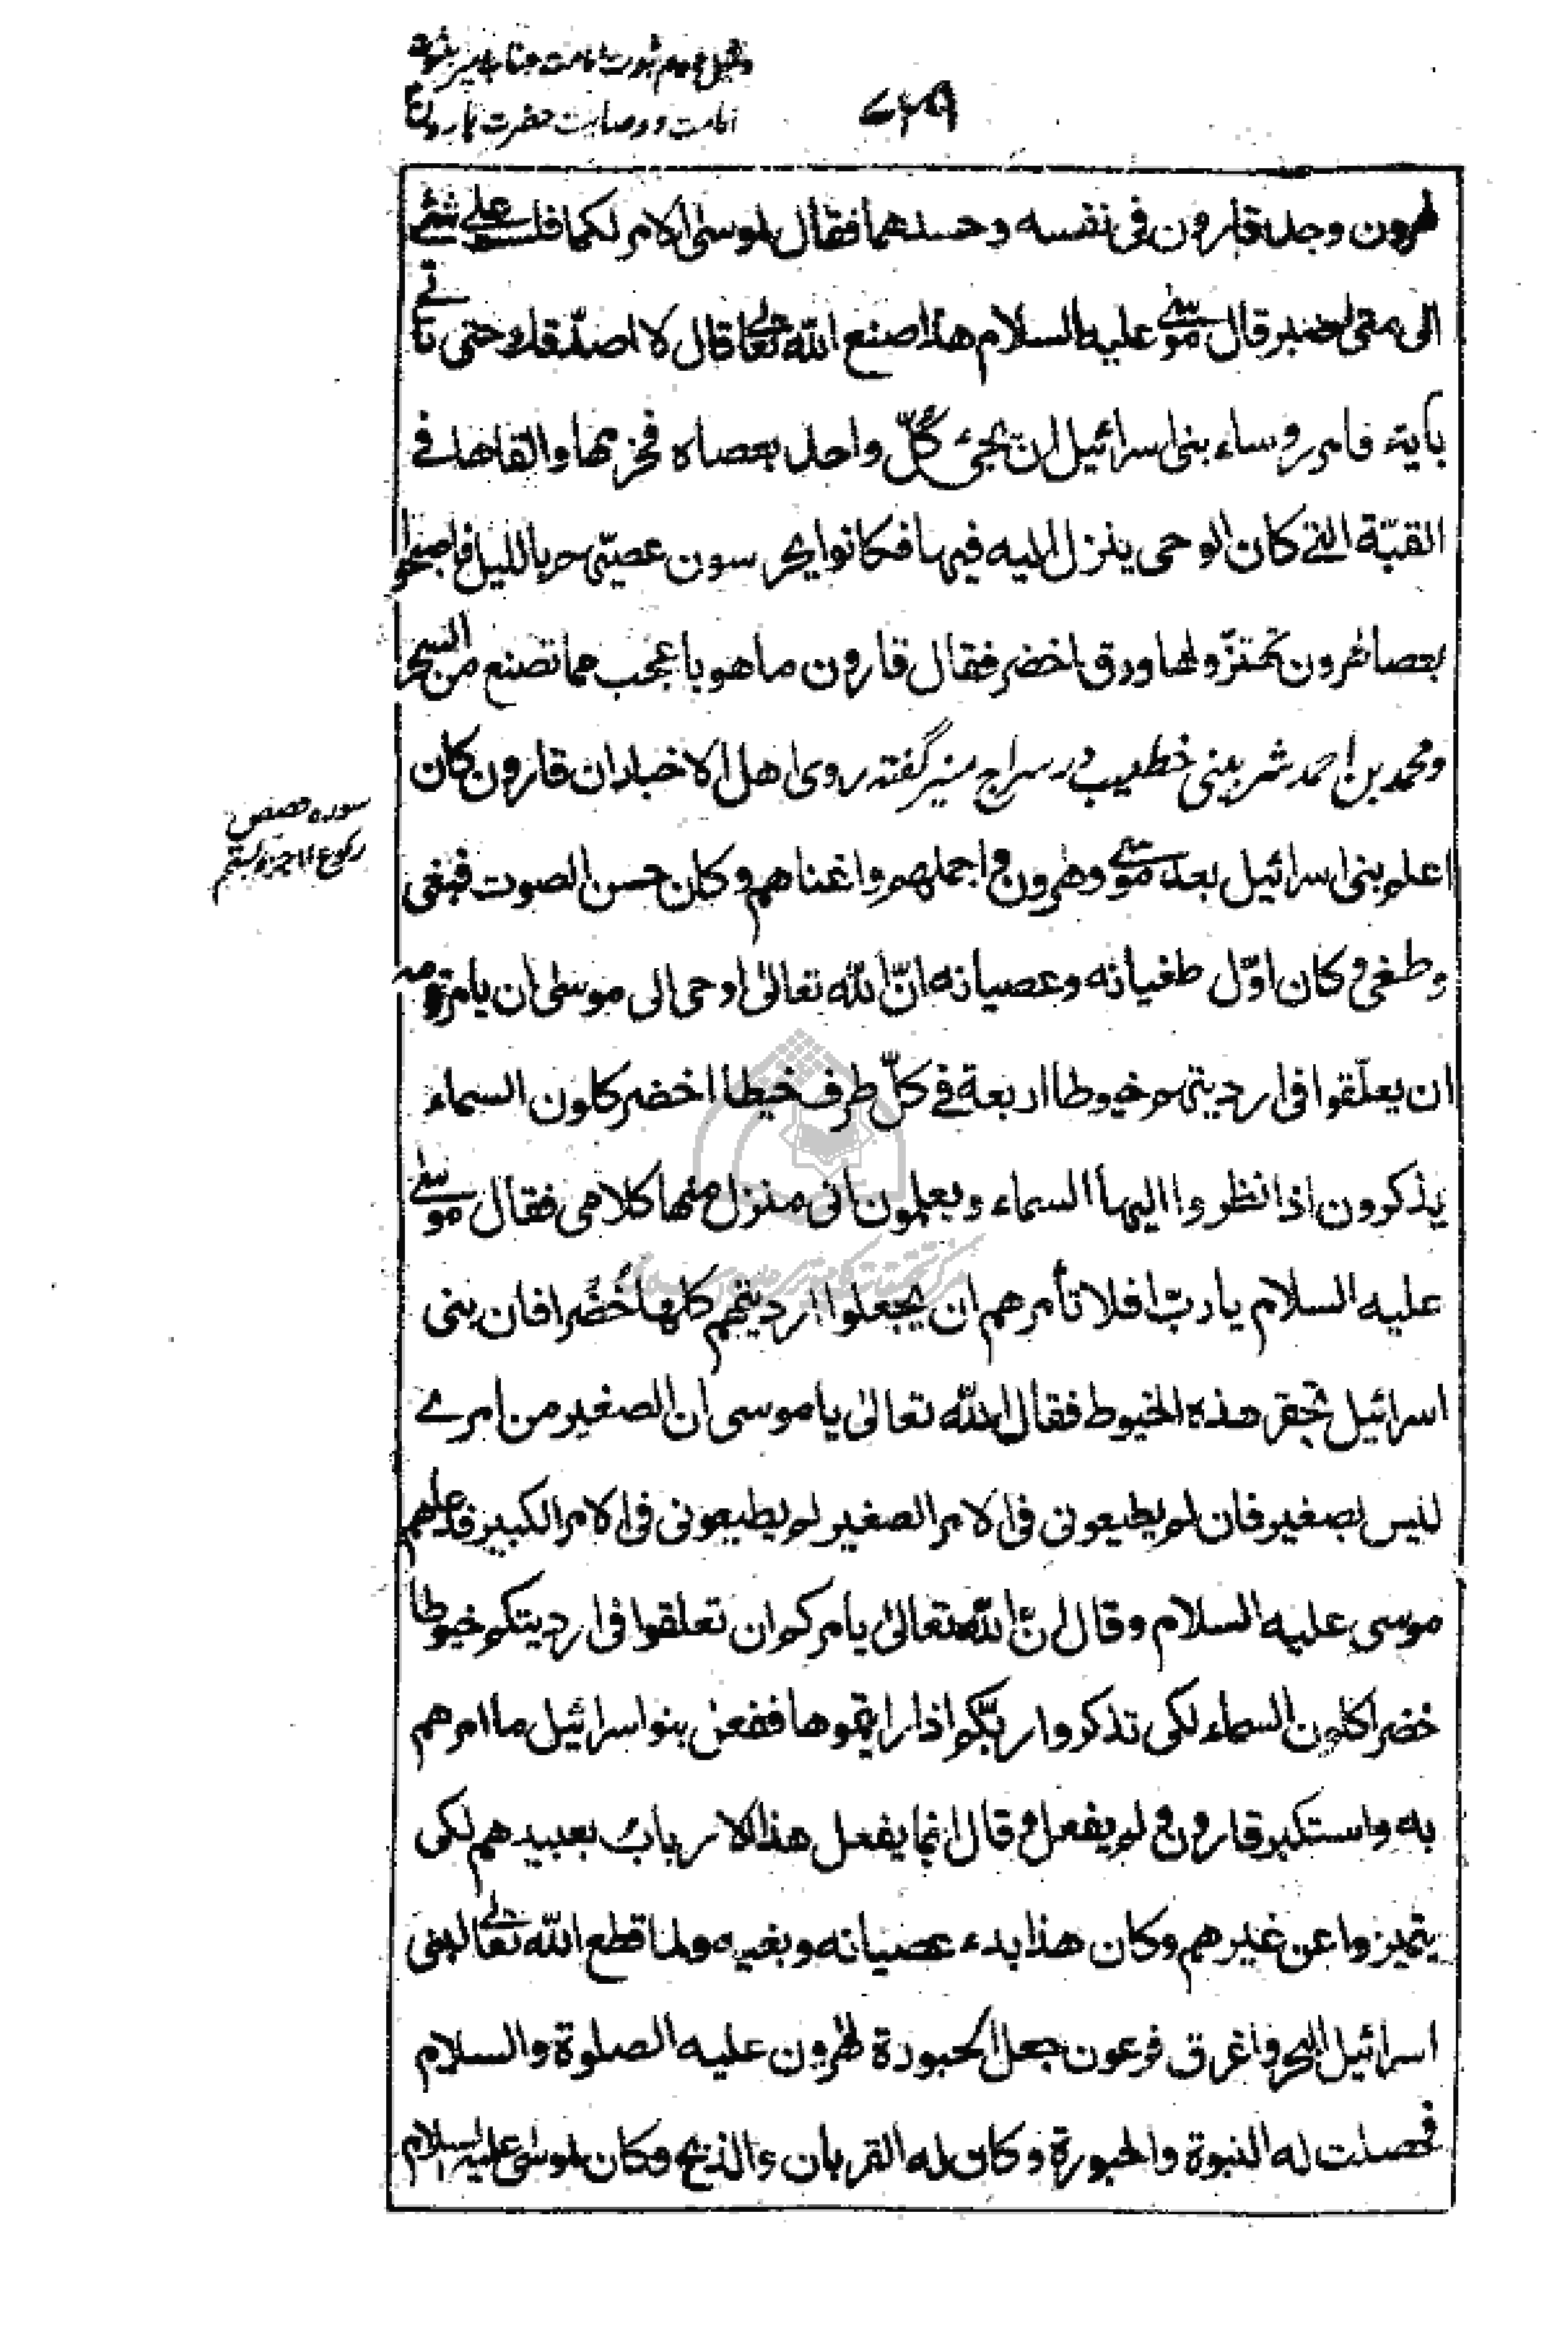 دلیل دوم ثبوت امامت جناب امیر
امامت و وصایت حضرت هارون
۷۴۹
لهرون وجد قارون فی نفسه وحسدهما فقال لموسی الامر لکما فلست علی شئ
الی متی اصبر قال موسی علیه السلام هذا صنع الله تعالی قال لا اصدّقك حتی تأتی
بایة فامر رؤساء بنی اسرائیل ان یجئ کلّ واحد بعصاه فخزمها والقاها فے
القبّة التے کان الوحی ینزل الیه فیها فکانوا یحرسون عصیّهم باللیل فاصبحوا
بعصا هرون تهتزّ ولها ورق اخضر فقال قارون ما هو باعجب مما تصنع من السحر
و محمد بن احمد شربینی خطیب در سراج منیر گفته روی اهل الاخبار ان قارون کان
اعلم بنی اسرائیل بعد موسی وهرون و اجملهم و اغناهم و کان حسن الصوت فبغی
و طغی و کان اوّل طغیانه و عصیانه انّ الله تعالیٰ اوحی الی موسیٰ ان یامر قومه
ان یعلّقوا فی اردیتهم خیوطا اربعة فے کلّ طرف خیطا اخضر کلون السماء
یذکرون اذا نظروا الیها السماء و یعلمون انی منزل منها کلامی فقال موسیٰ
علیه السلام یا ربّ افلا تأمرهم ان یجعلوا اردیتهم کلها خُضُرا فان بنی
اسرائیل تحقر هذه الخیوط فقال الله تعالیٰ یا موسی ان الصغیر من امرے
لیس بصغیر فان لم یطیعونی فی الامر الصغیر لم یطیعونی فی الامر الکبیر فدعاهم
موسی علیه السلام وقال انّ الله تعالیٰ یامرکم ان تعلقوا فی اردیتکم خیوطا
خضرا کلون السماء لکی تذکروا ربّکم اذا رایتموها ففعل بنو اسرائیل ما امرهم
به واستکبر قارون و لم یفعل و قال انما یفعل هذا الارباب بعبیدهم لکی
یتمیزوا عن غیرهم وکان هذا بدء عصیانه وبغیه ولما قطع الله تعالی لبنی
اسرائیل البحر واغرق فرعون جعل الحبورة لهرون علیه الصلوة والسلام
فحصلت له النبوة والحبورة وکان له القربان والذبح وکان لموسی علیه السلام
سوره قصص
رکوع ۱۱ جزو بستم